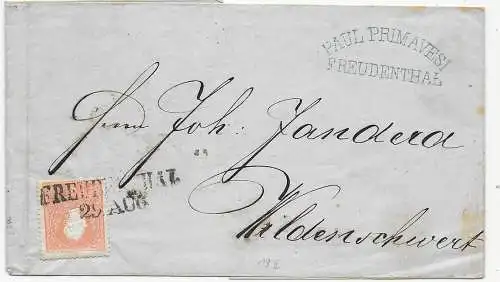 PAUL PRIMAVESI
FREUDENTHAL
Herrn Joh: Jandera
FREUDENTHAL
29 AUG
Wildenschwert